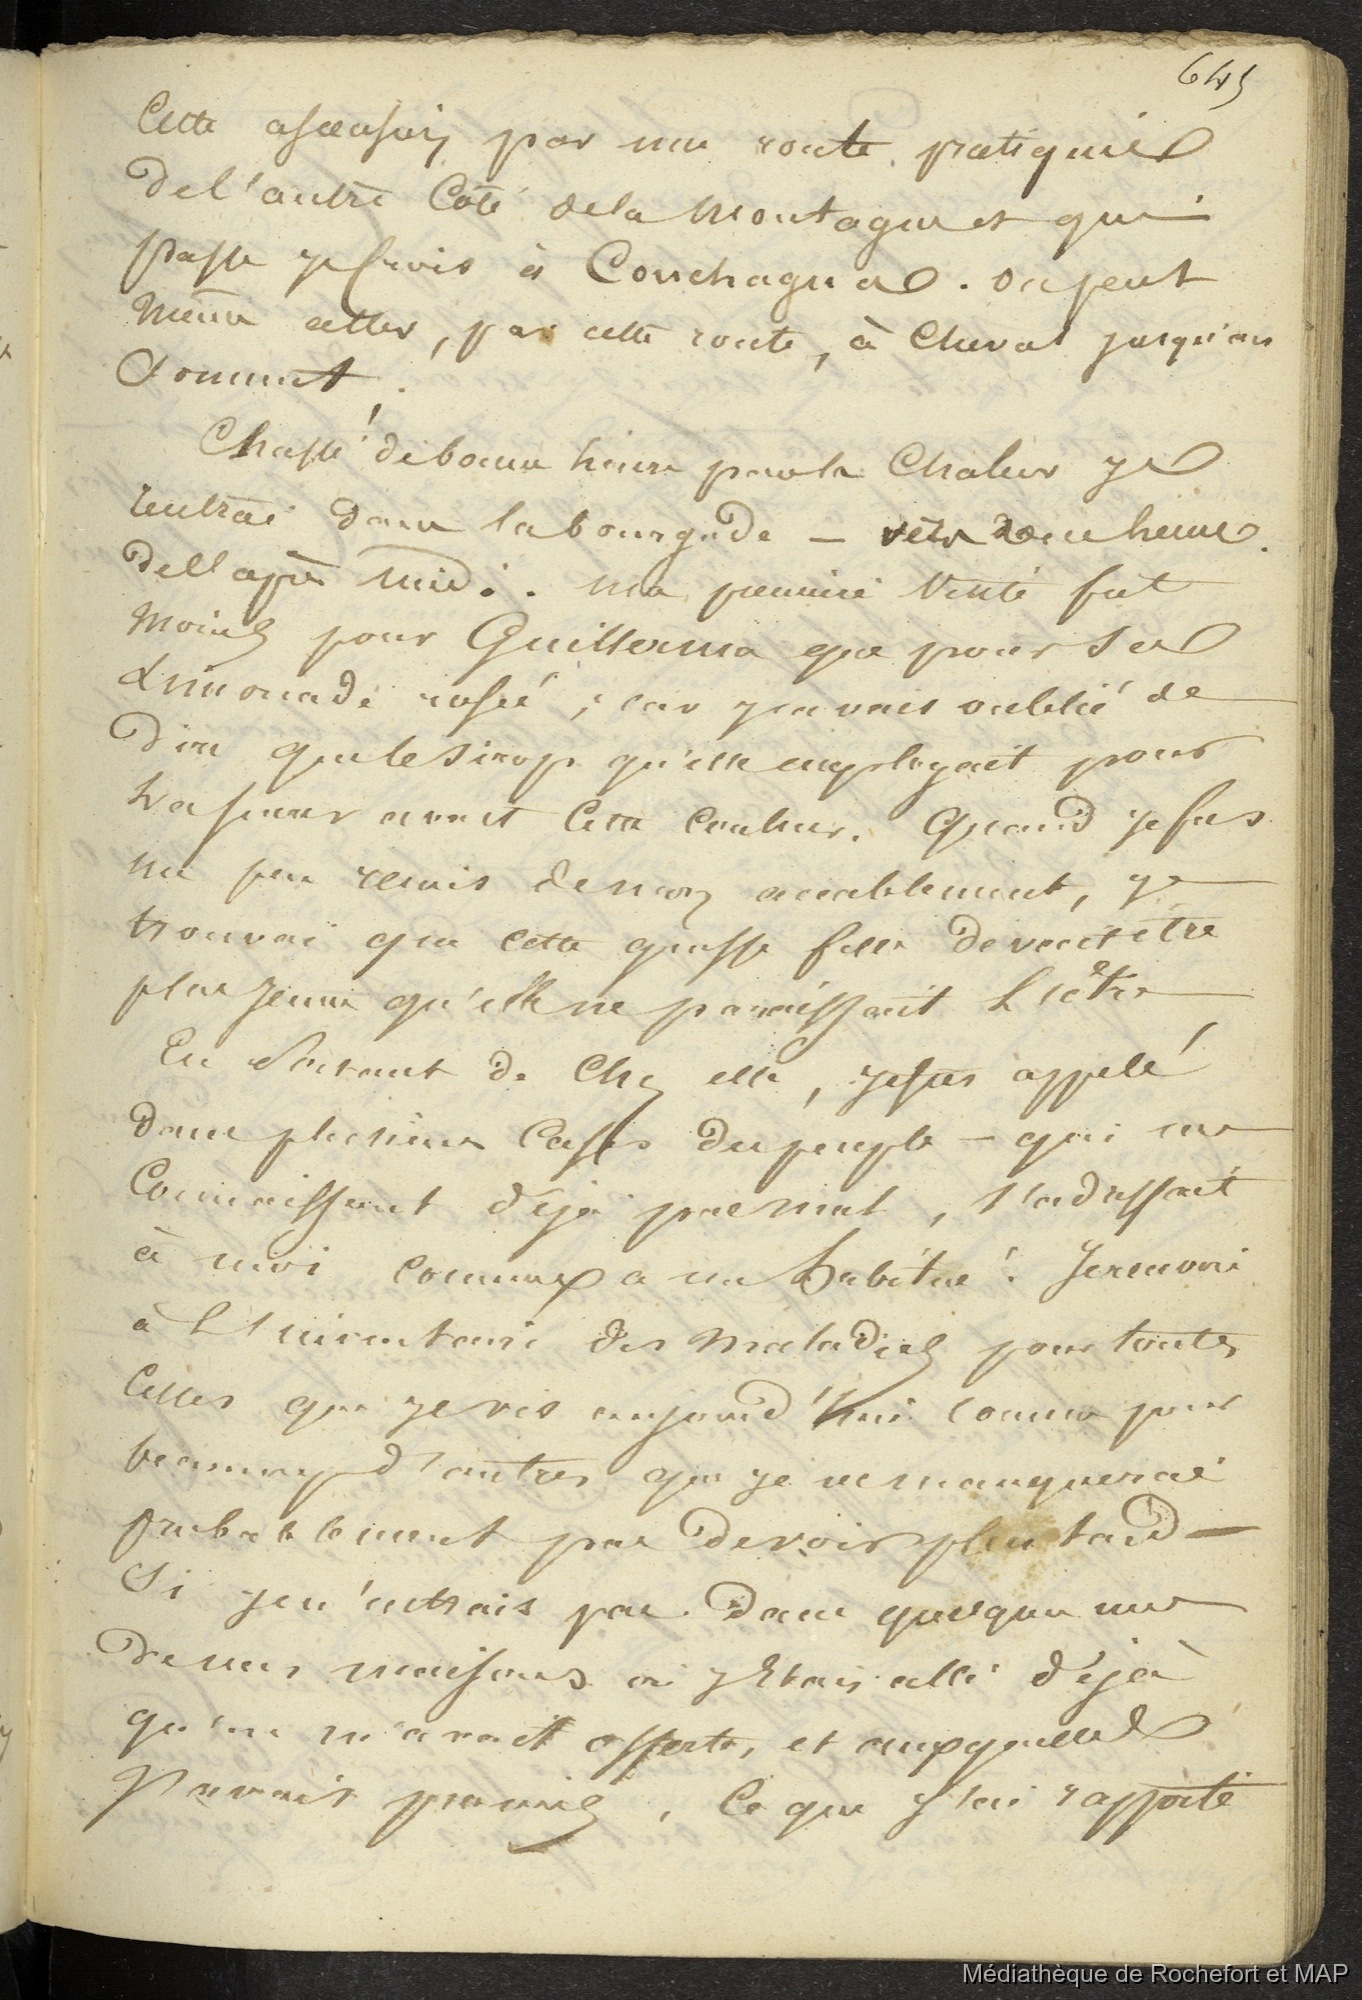 645
Cette ascension par une route pratiquée
de l'autre Côté de la Montagne et qui
passe je crois à Conchagua. on peut
même aller, par cette route, à Cheval jusqu'au
Sommet.
Chassé de bonne heure par la Chaleur je
rentrai dans la bourgade — vers une heure
de l'après midi. Ma première Visite fut
Moins pour Guillerma que pour sa
Limonade rosée ; car j'avais oublié de
dire que le sirop qu'elle employait pour
avait Cette Couleur. Quand je fus
un peu remis de mon accablement, je
trouvai que cette grosse fille devait être
plus Jeune qu'elle ne paraissait L'être
En Sortant de Chez elle, je fus appelé
dans plusieurs Cases du peuple — qui me
Connaissant déjà pas mal, s'adressait
à moi comme a un habitué. Je renvoie
à L'inventaire des Maladies pour toutes
Celles que je vis aujourd'hui comme pour
beaucoup d'autres que je ne manquerai
probablement pas de voir plus tard —
Si je n'entrais pas dans quelqu'une
de ces maisons où J'étais allé déjà
qu'on m'avait offerts, et auxquelles
J'avais promis, Ce que j'ai rapporté
Médiathèque de Rochefort et MAP